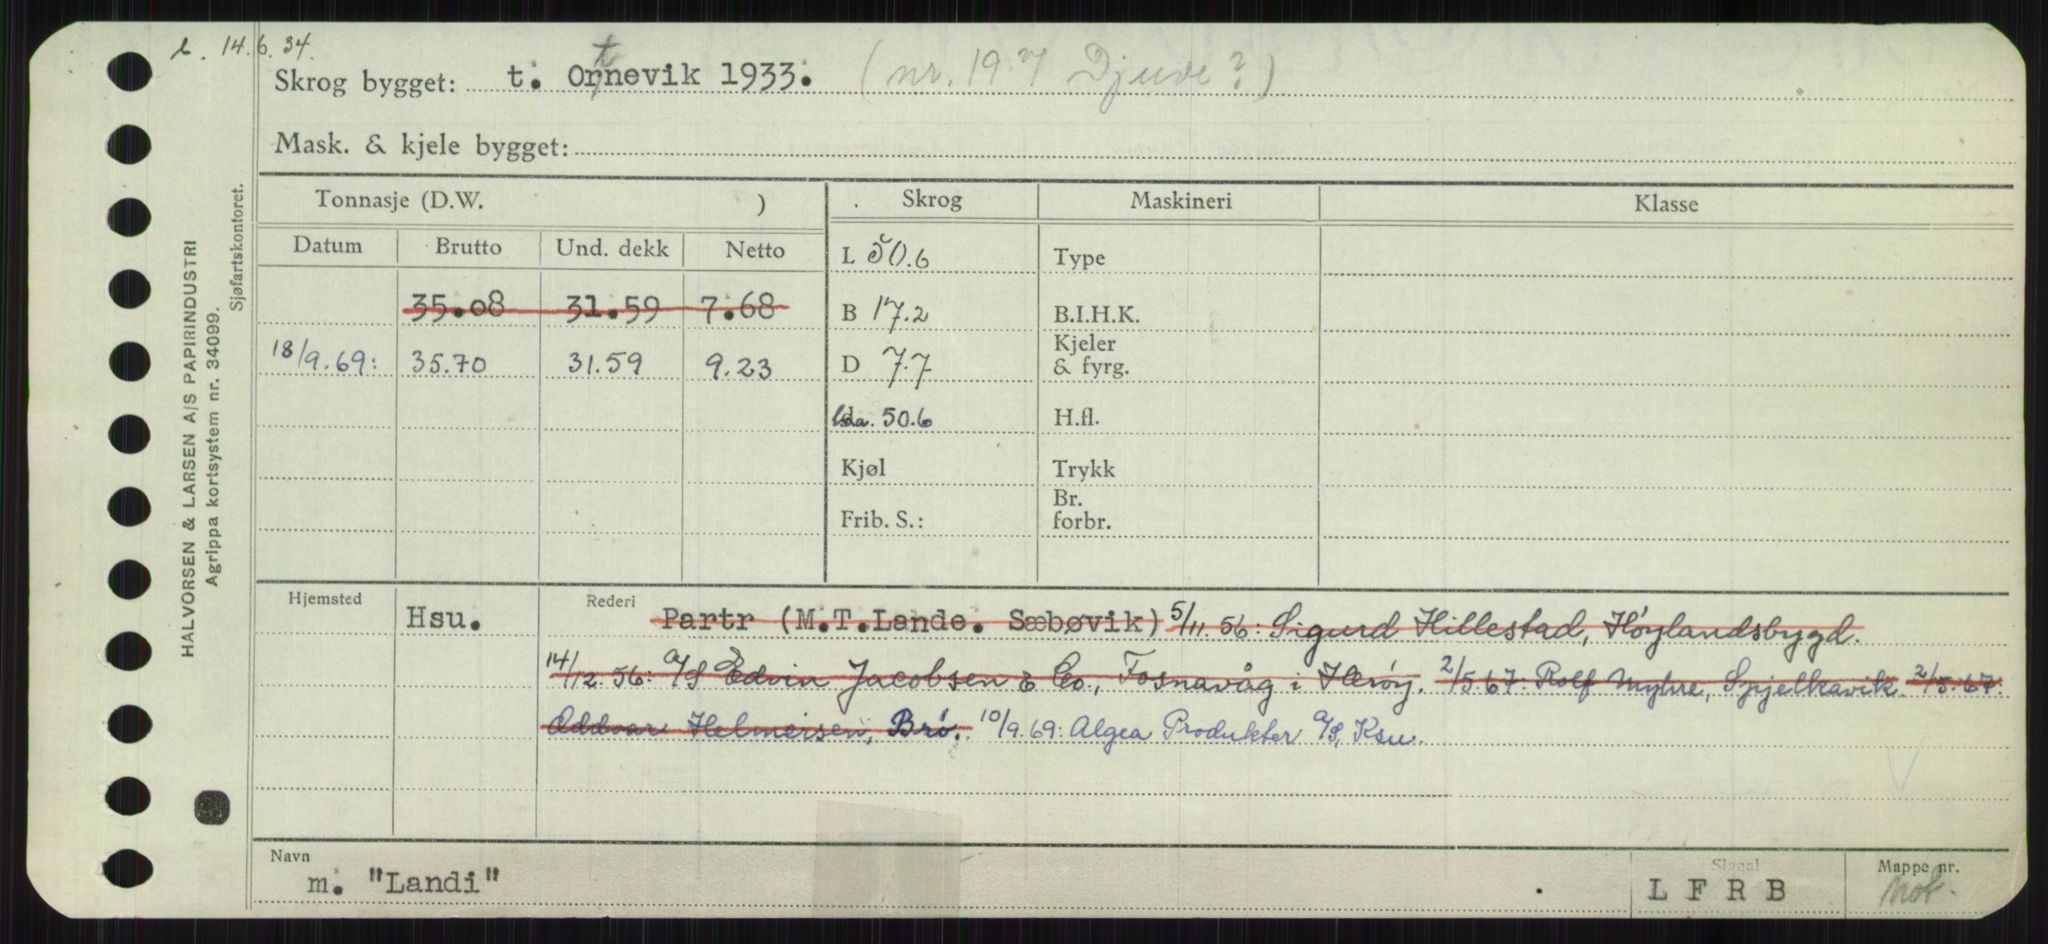 l. 14.6.34.
Skrog bygget: t. Ortnevik 1933. (nr. 197 Djuve?)
Mask. & kjele bygget:
Tonnasje (D.W. ) Skrog Maskineri Klasse
Datum Brutto Und. dekk Netto
L 50.6 Type
35.08 31.59 7.68 B 17.2 B.I.H.K.
18/9.69: 35.70 31.59 9.23 D 7.7 Kjeler & fyrg.
lda. 50.6 H.fl.
Kjøl Trykk
Frib. S.: Br. forbr.
Hjemsted Hsu. Rederi Partr (M.T.Lande. Sæbøvik) 5/11.56: Sigurd Hillestad, Höylandsbygd.
14/12.56: A/S Edvin Jacobsen & Co., Fosnavåg i Herøy. 2/5.67: Rolf Myhre, Spjelkavik. 2/5.67:
Oddvar Helmersen, Brö. 10/9.69: Algea Produkter A/S, Ksu.
Navn Signal Mappe nr.
m. "Landi" L F R B Mot.
HALVORSEN & LARSEN A/S PAPIRINDUSTRI
Agrippa kortsystem nr. 34099.
Sjøfartskontoret.